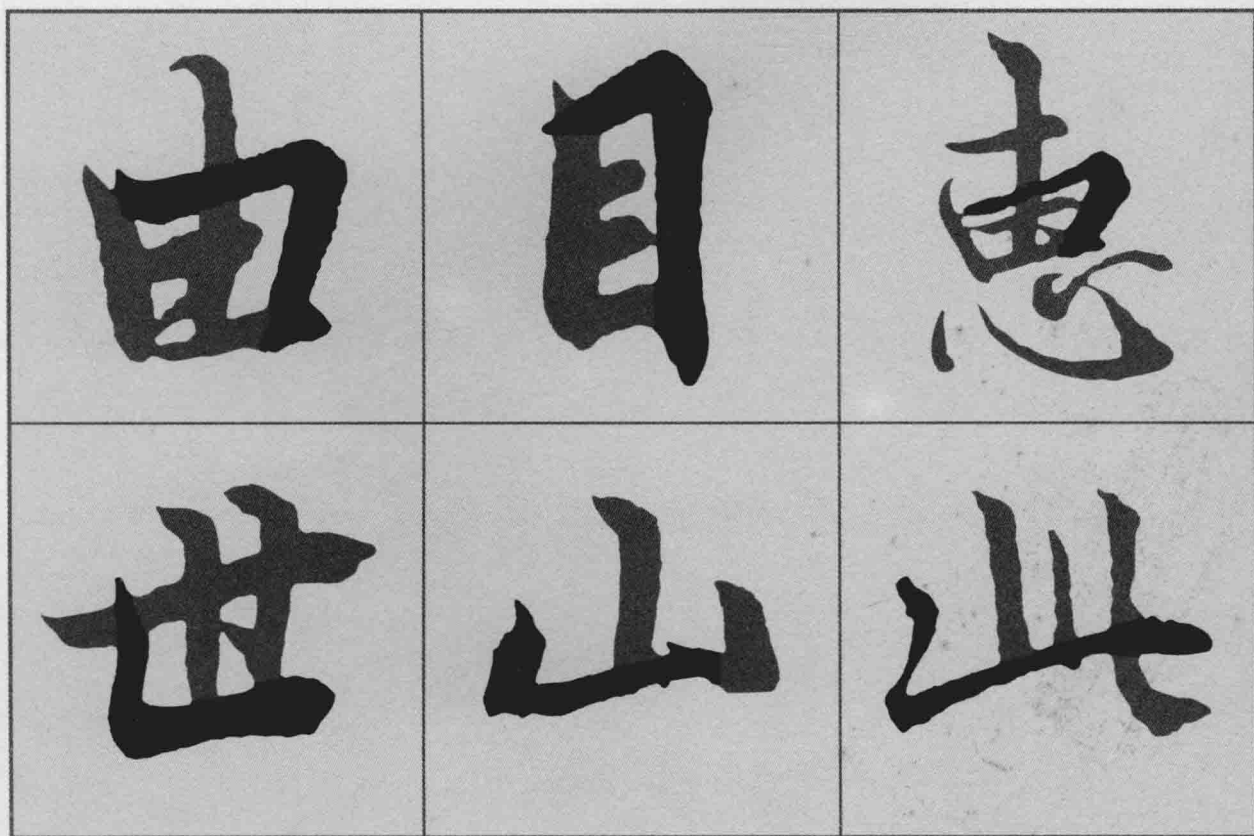 由目惠
世山此